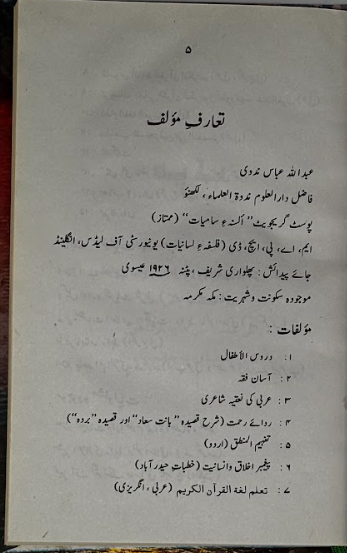 ۵
تعارفِ مؤلف
عبداللہ عباس ندوی
فاضل دارالعلوم ندوۃ العلماء، لکھنؤ
پوسٹ گریجویٹ "ألسنۂ سامیات" (ممتاز)
ایم، اے، پی، ایچ، ڈی (فلسفۂ لسانیات) یونیورسٹی آف لیڈس، انگلینڈ
جائے پیدائش : پھلواری شریف، پٹنہ ۱۹۲۶ عیسوی
موجودہ سکونت و شہریت : مکہ مکرمہ
مؤلفات :
۱ : دروس الأطفال
۲ : آسان فقہ
۳ : عربی کی نعتیہ شاعری
۴ : ردائے رحمت (شرح قصیدہ "بانت سعاد" اور قصیدہ "بردہ")
۵ : تفہیم المنطق (اردو)
۶ : پیغمبر اخلاق و انسانیت (خطبات حیدرآباد)
۷ : تعلم لغة القرآن الكريم (عربی، انگریزی)